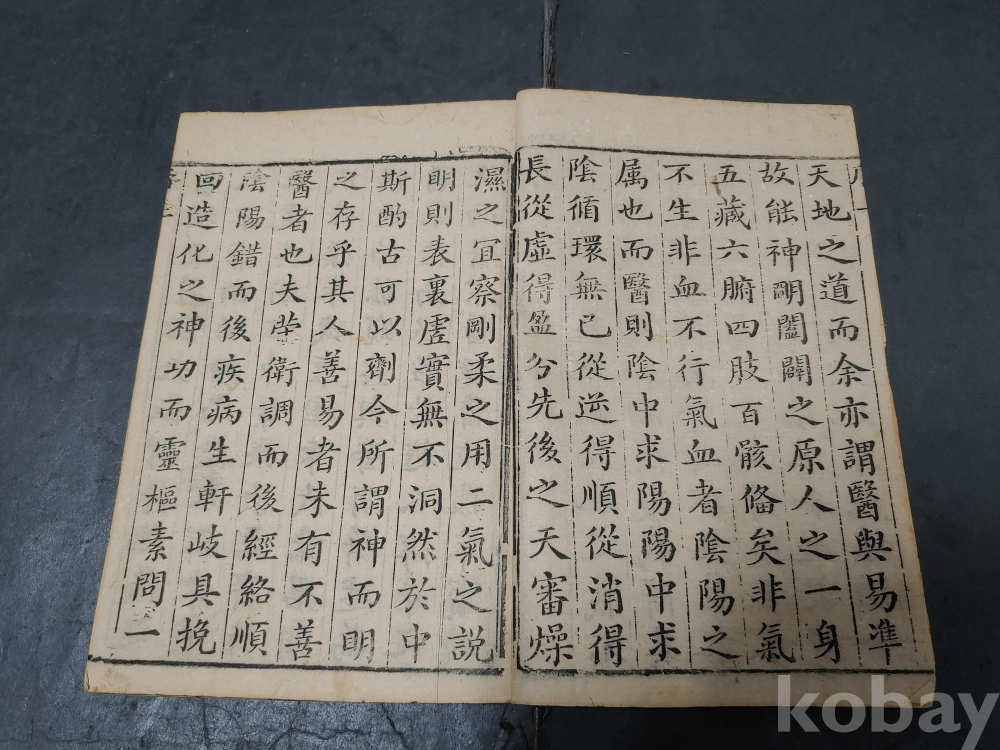 天地之道而余亦謂醫與易準
故能神明闔闢之原人之一身
五藏六腑四肢百骸俻矣非氣
不生非血不行氣血者陰陽之
属也而醫則陰中求陽陽中求
陰循環無已從逆得順從消得
長從虛得盈分先後之天審燥
濕之宜察剛柔之用二氣之説
明則表裏虛實無不洞然於中
斯酌古可以劑今所謂神而明
之存乎其人善易者未有不善
醫者也夫榮衛調而後經絡順
陰陽錯而後疾病生軒岐具挽
回造化之神功而靈樞素問一
kobay